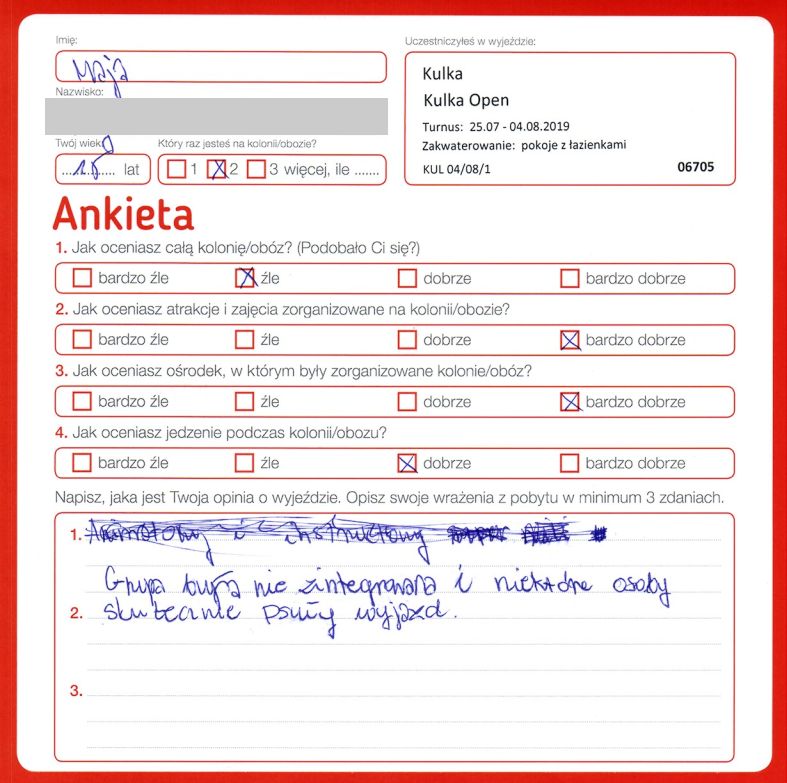 Imię:
Maja
Nazwisko:
Twój wiek:
15 lat
Który raz jesteś na kolonii/obozie?
1 2 3 więcej, ile .......
Uczestniczyłeś w wyjeździe:
Kulka
Kulka Open
Turnus: 25.07 - 04.08.2019
Zakwaterowanie: pokoje z łazienkami
KUL 04/08/1 06705
Ankieta
1. Jak oceniasz całą kolonię/obóz? (Podobało Ci się?)
bardzo źle źle dobrze bardzo dobrze
2. Jak oceniasz atrakcje i zajęcia zorganizowane na kolonii/obozie?
bardzo źle źle dobrze bardzo dobrze
3. Jak oceniasz ośrodek, w którym były zorganizowane kolonie/obóz?
bardzo źle źle dobrze bardzo dobrze
4. Jak oceniasz jedzenie podczas kolonii/obozu?
bardzo źle źle dobrze bardzo dobrze
Napisz, jaka jest Twoja opinia o wyjeździe. Opisz swoje wrażenia z pobytu w minimum 3 zdaniach.
1. i instruktorzy
Grupa była nie zintegrowana i niektóre osoby
2. skutecznie psuły wyjazd.
3.